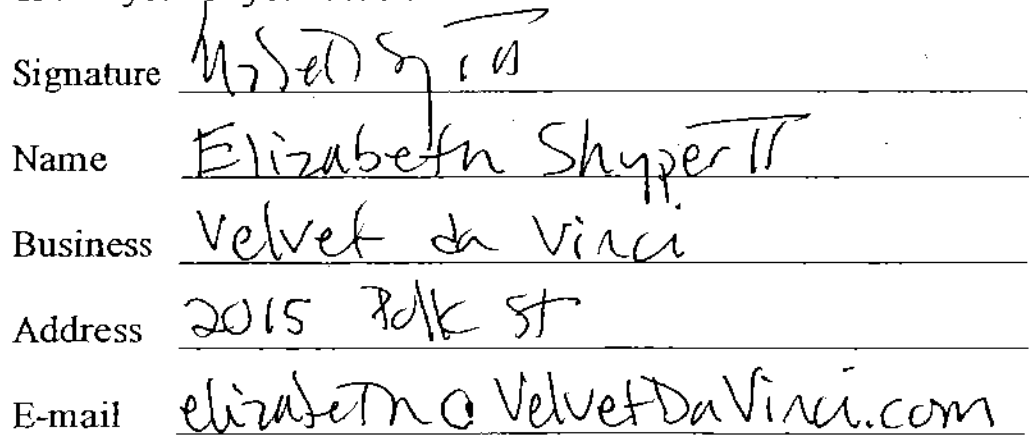 Signature
Name Elizabeth Shypertt
Business Velvet da Vinci
Address 2015 Polk St
E-mail elizabeth@VelvetDaVinci.com